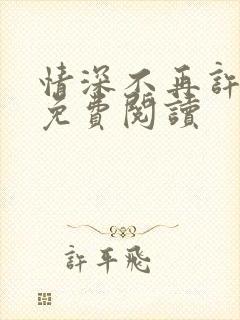 情深不再許
免費閱讀
許平飛